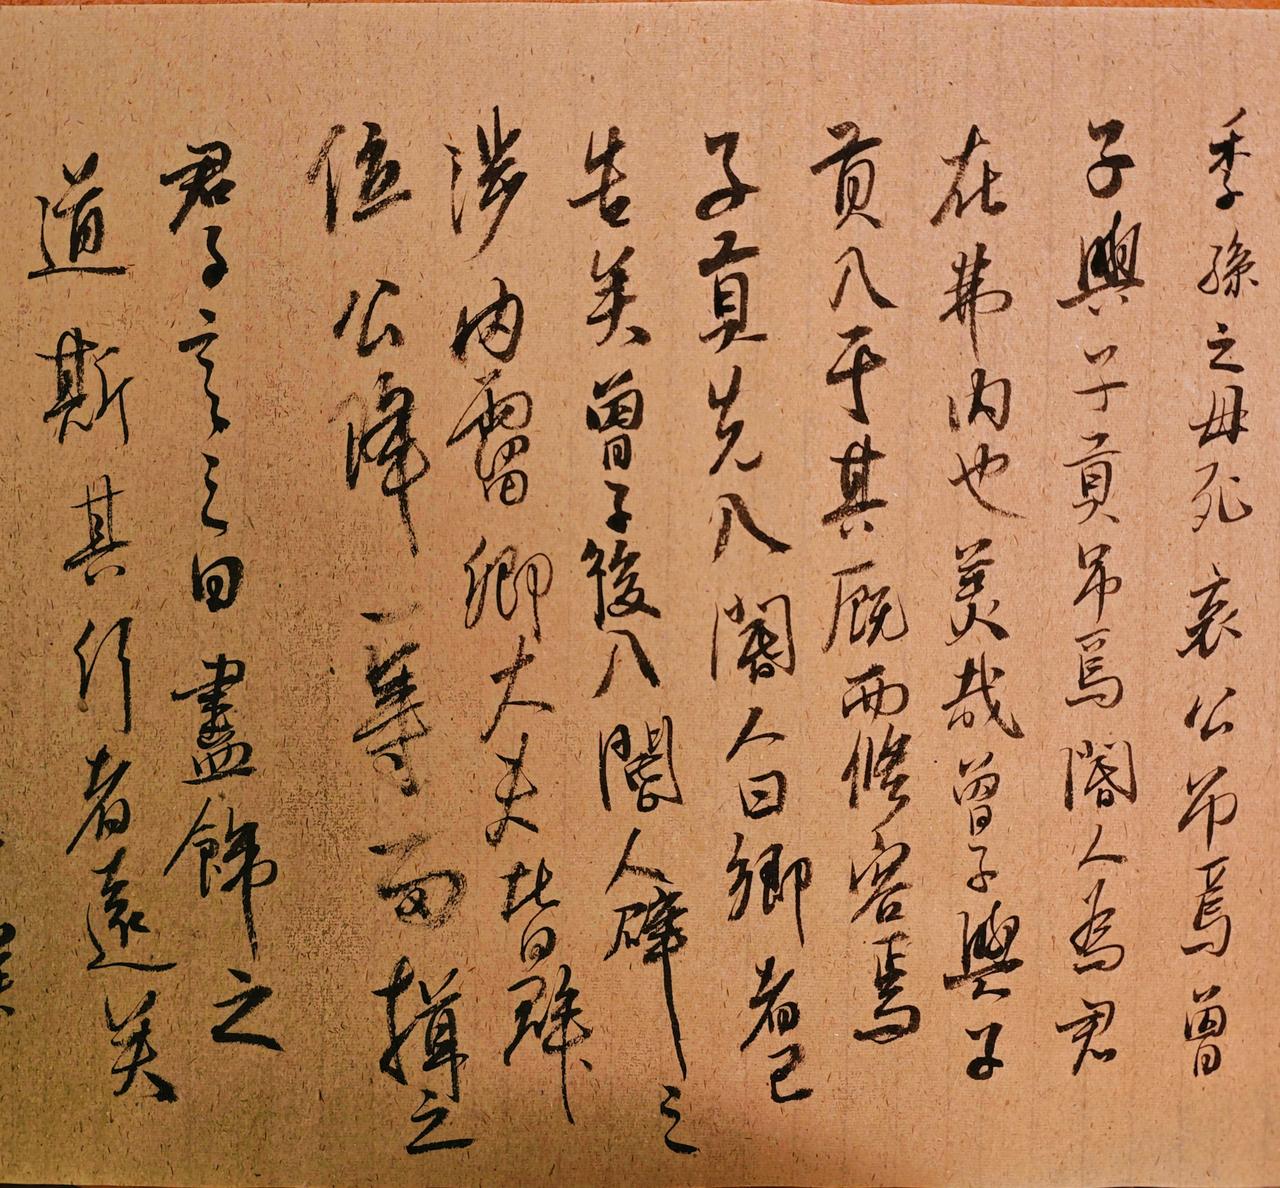 季孫之母死哀公吊焉曾
子與子貢吊焉閽人為君
在弗内也美哉曾子與子
貢入于其厩而修容焉
子貢先入閽人曰鄉者已
告矣曾子後入閽人辟之
涉内霤卿大夫皆辟
位公降一等而揖之
君子言之曰盡飾之
道斯其行者遠矣